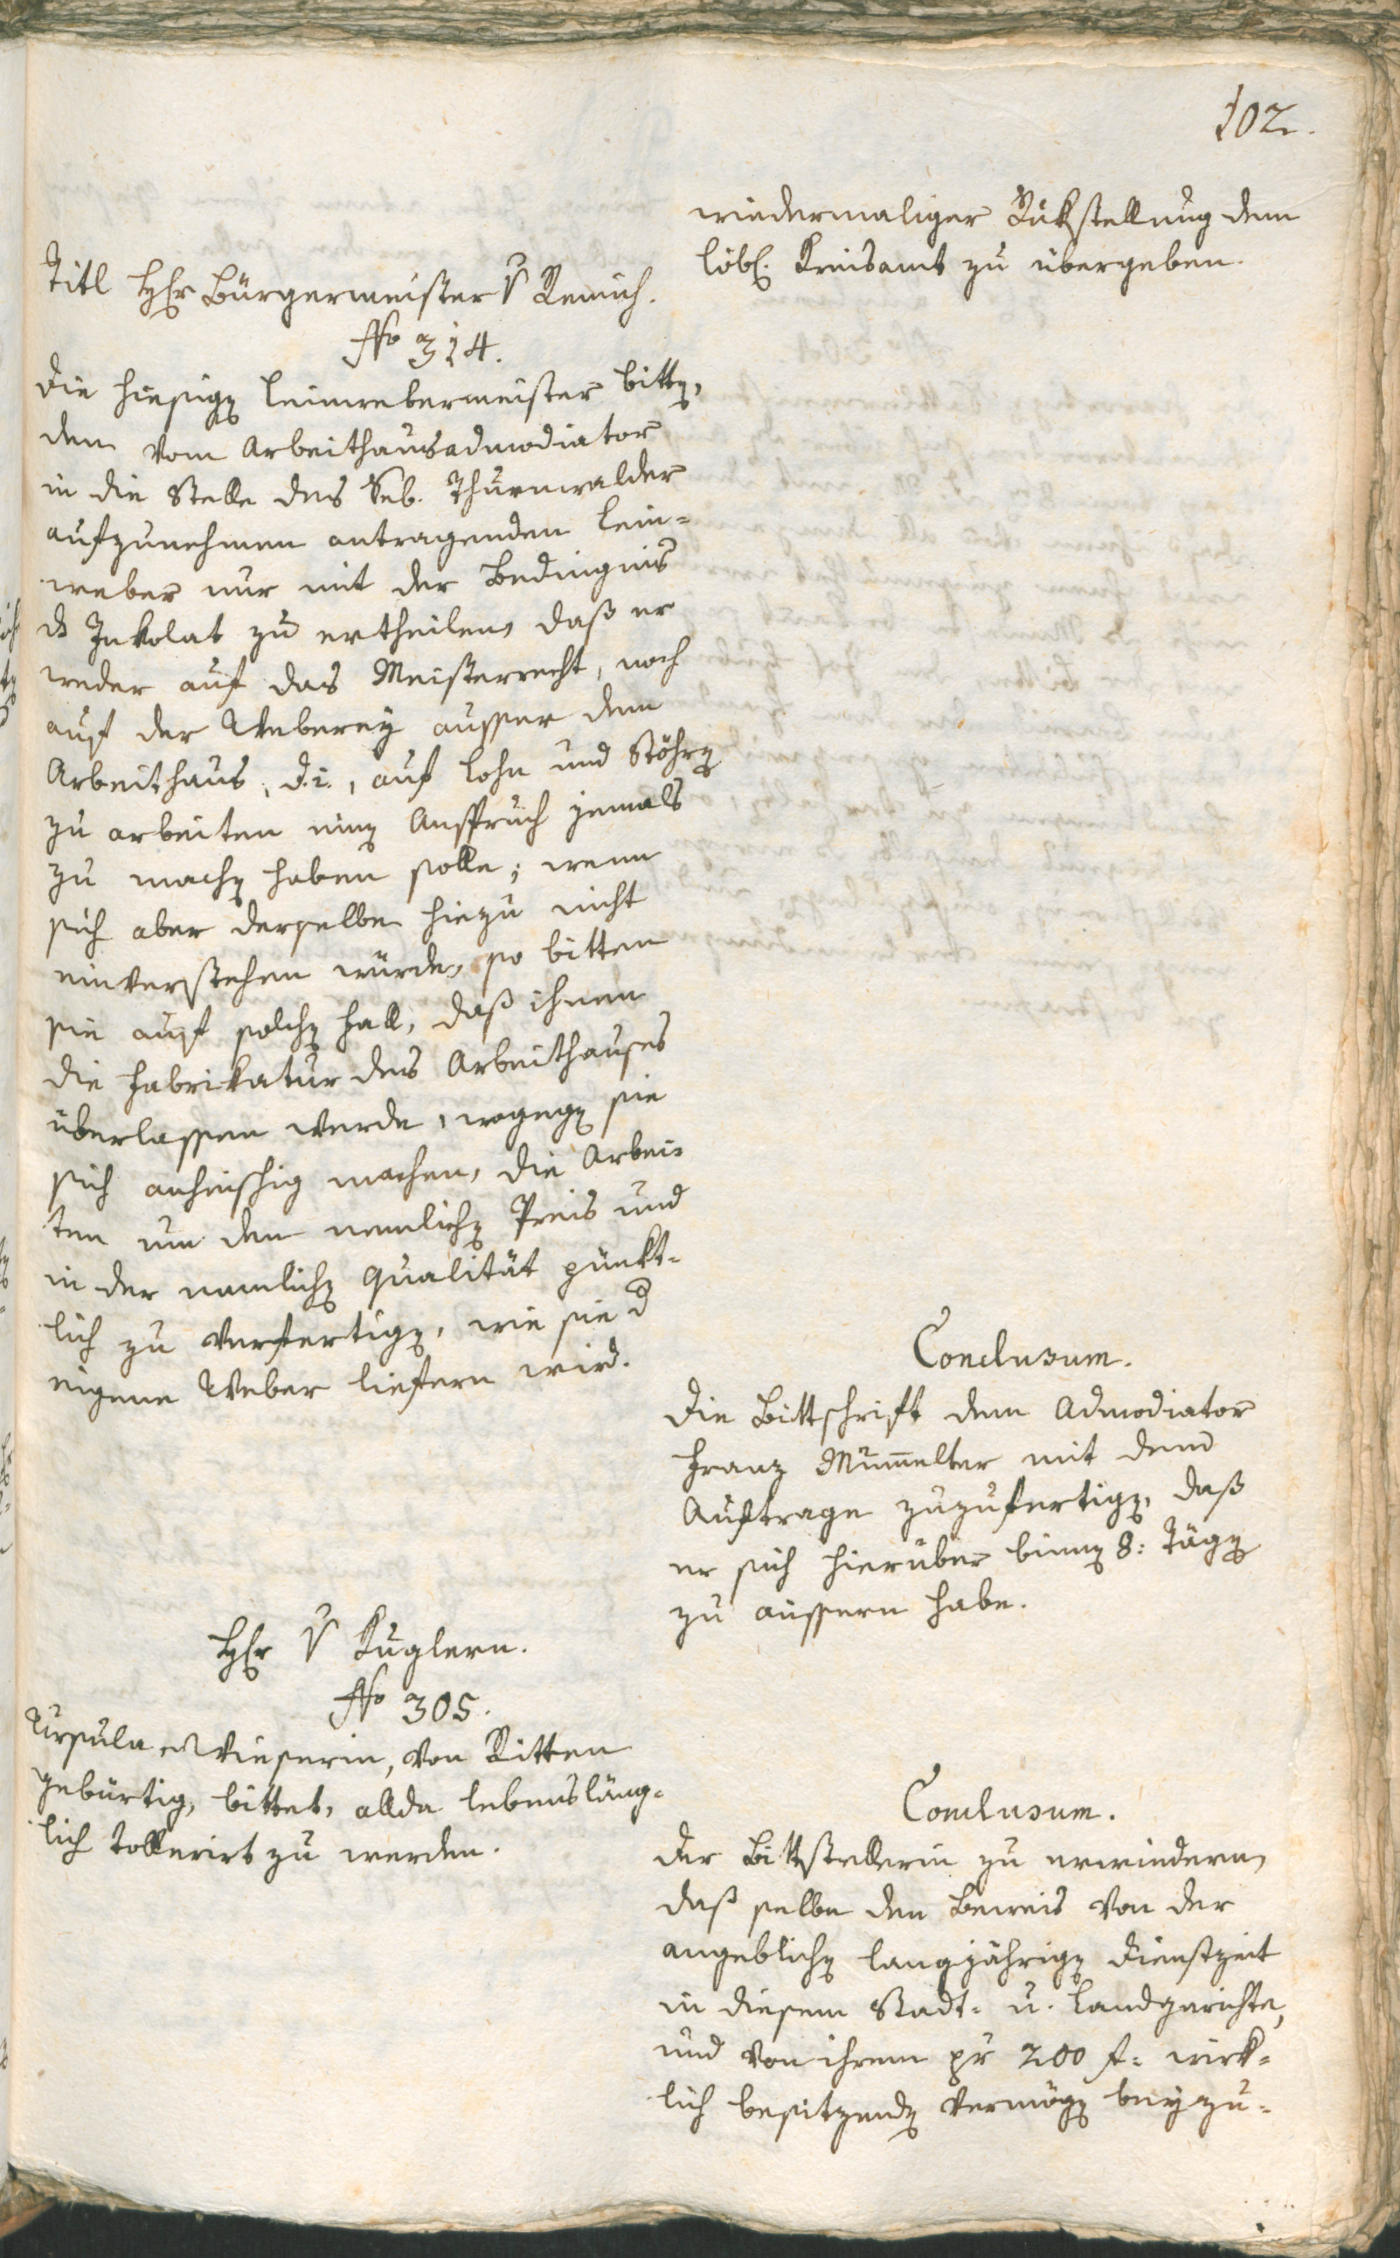 102.
wiedermaliger Rükstellung dem
löbl. Kreisamt zu übergeben.
Titl Hr Bürgermeister v Remich.
No 314.
Die hiesigen Leinwebermeister bitten,
dem vom Arbeithausadmodiator
in die Stelle des Seb. Thurnwalder
aufzunehmen antragenden Lein-
weber nur mit der Bedingnis
ds Inkolat zu ertheilen, daß er
weder auf das Meisterrecht, noch
auf der Weberey ausser dem
Arbeithaus, d. i., auf Lohn und Stöhren
zu arbeiten einen Anspruch jemals
zu machen haben solle; wenn
sich aber derselbe hiezu nicht
einverstehen würde, so bitten
sie auf solchen Fall, daß ihnen
die Fabrikatur des Arbeithauses
überlassen werde, wogegen sie
sich anheischig machen, die Arbei-
ten um den nemlichen Preis und
in der nemlichen Qualität pünkt-
lich zu verfertigen, wie sie d
eigene Weber liefern wird.
Conclusum.
Die Bittschrift dem Admodiator
Franz Mum̄elter mit dem
Auftrage zuzufertigen, daß
er sich hierüber binnen 8: Tägen
zu äussern habe.
Hr v Kuglern.
No 305.
Ursula Wieserin, von Ritten
gebürtig, bittet, allda lebensläng-
lich tollerirt zu werden.
Conclusum.
Der Bittstellerin zu erwiedern,
daß selbe den Beweis von der
angeblichen langjährigen Dienstzeit
in diesem Stadt- u. Landgerichte,
und von ihrem pr 200 f. wirk-
lich besitzenden Vermögen beyzu-